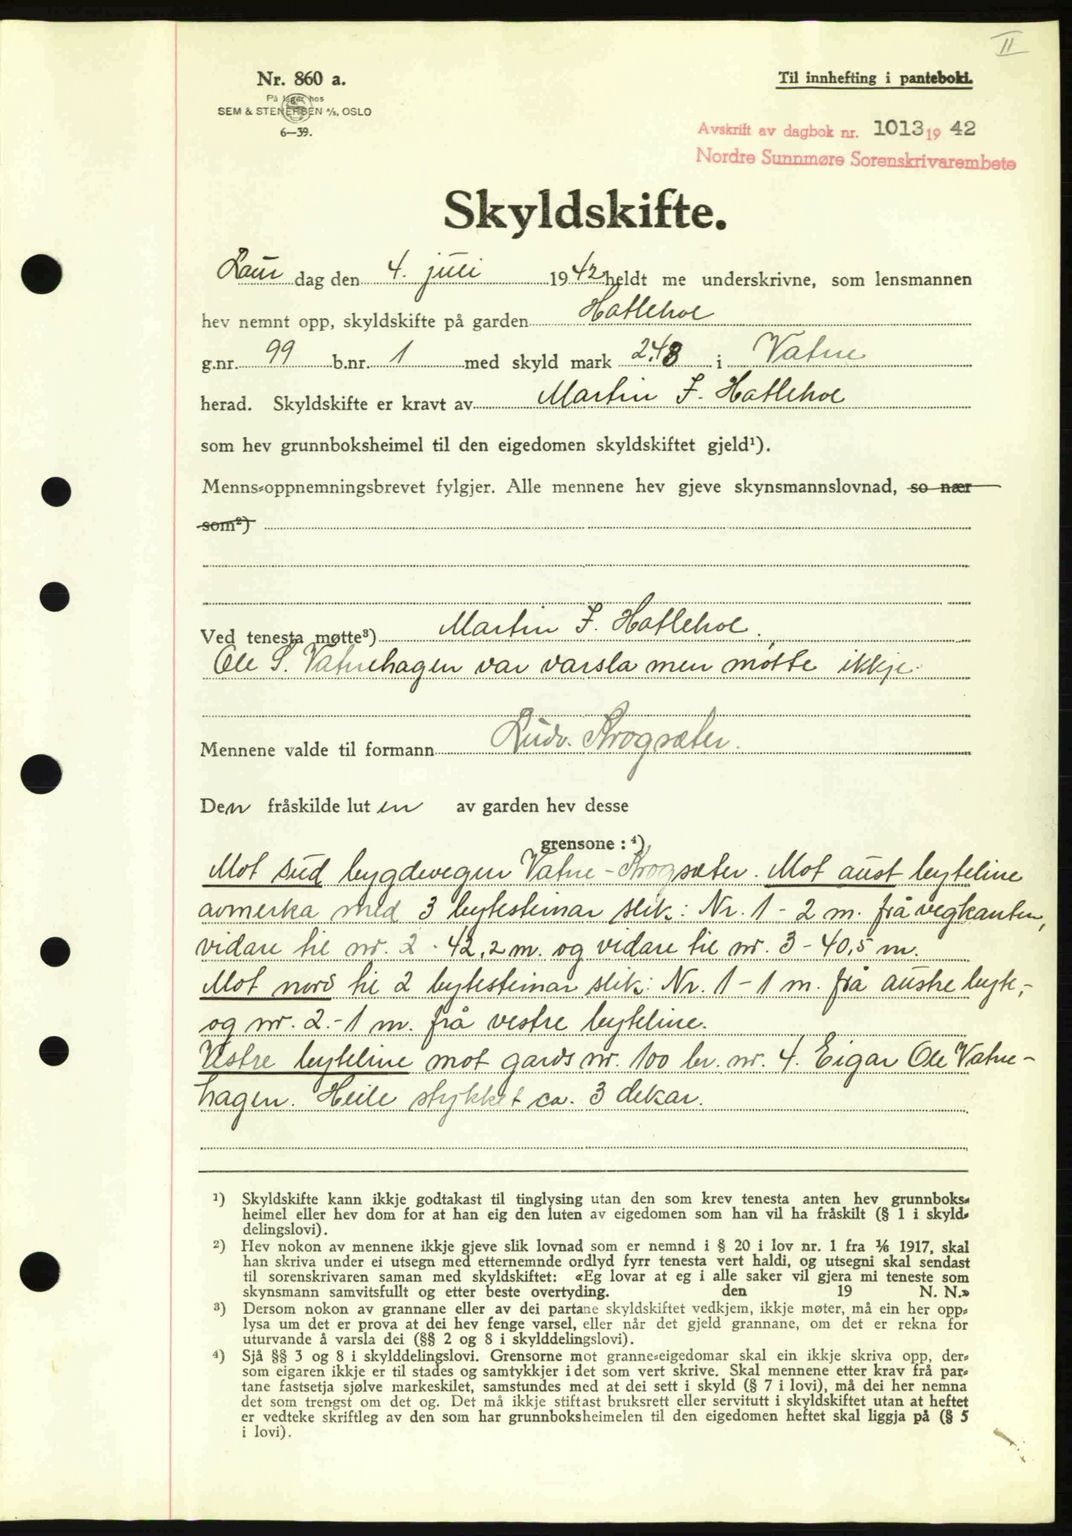 II
Nr. 860 a.
Til innhefting i pantebok.
På lager hos
SEM & STENERSEN A/S, OSLO
6—39.
Avskrift av dagbok nr. 1013 19 42
Nordre Sunnmøre Sorenskrivarembete
Skyldskifte.
Laur dag den 4. juli 1942 heldt me underskrivne, som lensmannen
hev nemnt opp, skyldskifte på garden Hatlehol
g.nr. 99 b.nr. 1 med skyld mark 2.48 i Vatne
herad. Skyldskifte er kravt av Martin F. Hatlehol
som hev grunnboksheimel til den eigedomen skyldskiftet gjeld¹).
Menns-oppnemningsbrevet fylgjer. Alle mennene hev gjeve skynsmannslovnad, so nær
som²)
Ved tenesta møtte³) Martin F. Hatlehol.
Ole S. Vatnehagen var varsla men møtte ikkje.
Mennene valde til formann Ludv. Krogsæter.
Den fråskilde luten av garden hev desse
grensone : ⁴)
Mot sud bygdevegen Vatne - Krogsæter. Mot aust byteline
avmerka med 3 bytesteinar slik: Nr. 1 - 2 m. frå vegkanten,
vidare til nr. 2 - 42,2 m. og vidare til nr. 3 - 40,5 m.
Mot nord til 2 bytesteinar slik: Nr. 1 - 1 m. frå austre byte,-
og nr. 2.- 1 m. frå vestre byteline.
Vestre byteline mot gards nr. 100 br. nr. 4. Eigar Ole Vatne-
hagen. Heile stykket ca. 3 dekar.
¹) Skyldskifte kann ikkje godtakast til tinglysing utan den som krev tenesta anten hev grunnboks-
heimel eller hev dom for at han eig den luten av eigedomen som han vil ha fråskilt (§ 1 i skyld-
delingslovi).
²) Hev nokon av mennene ikkje gjeve slik lovnad som er nemnd i § 20 i lov nr. 1 fra ¹/₆ 1917, skal
han skriva under ei utsegn med etternemnde ordlyd fyrr tenesta vert haldi, og utsegni skal sendast
til sorenskrivaren saman med skyldskiftet: «Eg lovar at eg i alle saker vil gjera mi teneste som
skynsmann samvitsfullt og etter beste overtyding. den 19 N. N.»
³) Dersom nokon av grannane eller av dei partane skyldskiftet vedkjem, ikkje møter, må ein her opp-
lysa um det er prova at dei hev fenge varsel, eller når det gjeld grannane, om det er rekna for
uturvande å varsla dei (§§ 2 og 8 i skylddelingslovi).
⁴) Sjå §§ 3 og 8 i skylddelingslovi. Grensorne mot granne-eigedomar skal ein ikkje skriva opp, der-
som eigaren ikkje er til stades og samtykkjer i det som vert skrive. Skal mennene etter krav frå par-
tane fastsetja sjølve markeskilet, samstundes med at dei sett i skyld (§ 7 i lovi), må dei her nemna
det som trengst om det og. Det må ikkje stiftast bruksrett eller servitutt i skyldskiftet utan at heftet
er vedteke skriftleg av den som har grunnboksheimelen til den eigedomen heftet skal liggja på (§ 5
i lovi).